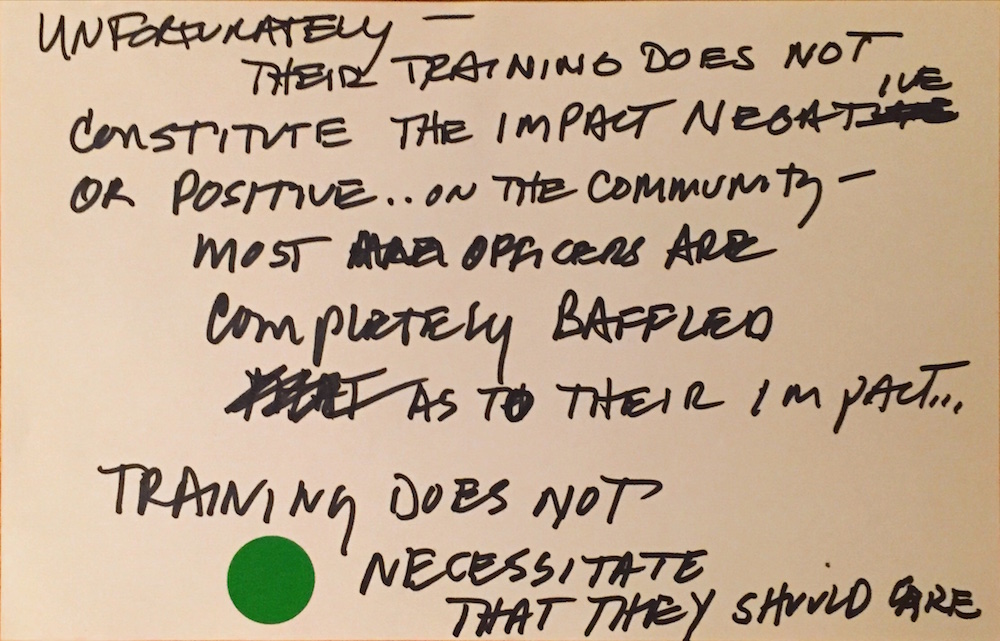 UNFORTUNATELY —
THEIR TRAINING DOES NOT
CONSTITUTE THE IMPACT NEGATIVE
OR POSITIVE.. ON THE COMMUNITY —
MOST OFFICERS ARE
COMPLETELY BAFFLED
AS TO THEIR IMPACT...
TRAINING DOES NOT
NECESSITATE
THAT THEY SHOULD CARE